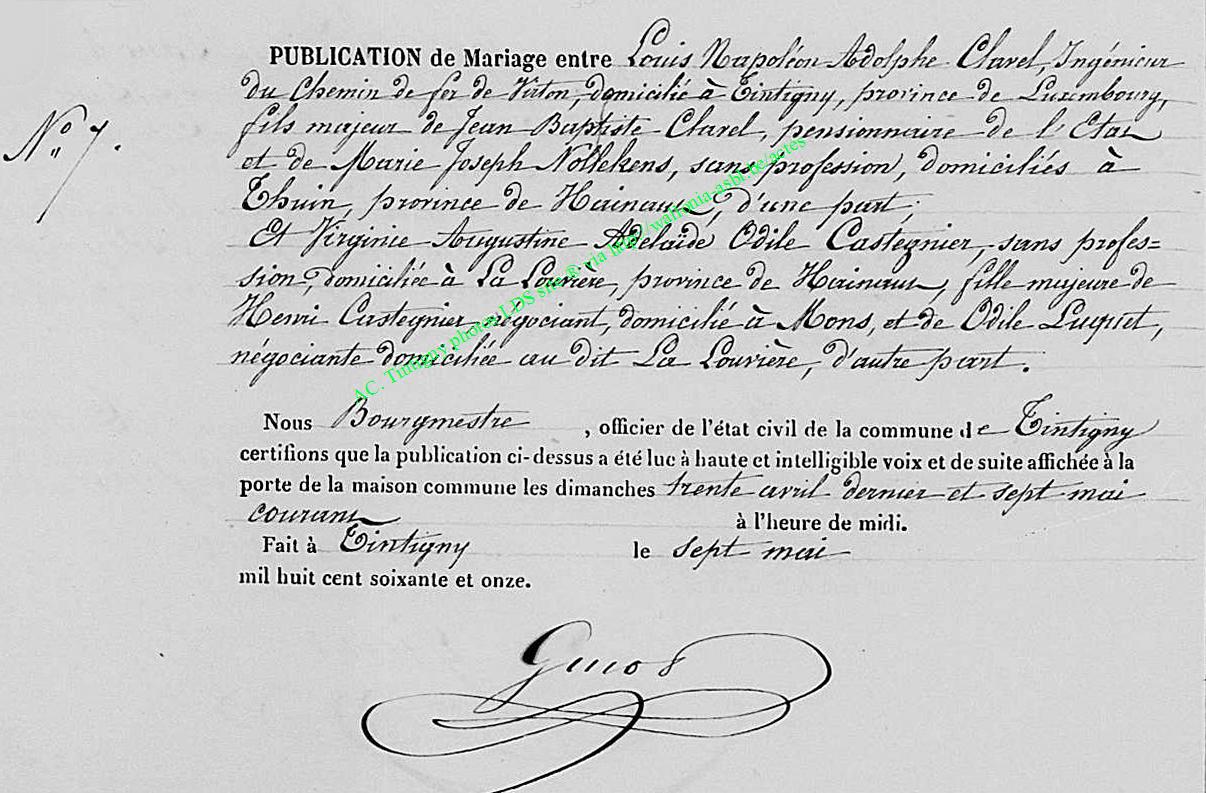 PUBLICATION de Mariage entre Louis Napoléon Adolphe Clarel, Ingénieur
du Chemin de fer de Virton, domicilié à Tintigny, province de Luxembourg,
N° 7.
fils majeur de Jean Baptiste Clarel, pensionnaire de l'Etat
et de Marie Joseph Nollekens, sans profession, domiciliés à
Thuin, province de Hainaut, d'une part,
Et Virginie Augustine Adelaïde Odile Castegnier, sans profes=
sion, domiciliée à La Louvière, province de Hainaut, fille majeure de
Henri Castegnier négociant, domicilié à Mons, et de Odile Luquet,
négociante domiciliée au dit La Louvière, d'autre part.
AC. Tintigny photos LDS site® via http://wallonia-asbl.be/actes
Nous Bourgmestre , officier de l'état civil de la commune de Tintigny
certifions que la publication ci-dessus a été lue à haute et intelligible voix et de suite affichée à la
porte de la maison commune les dimanches trente avril dernier et sept mai
courant à l'heure de midi.
Fait à Tintigny le sept mai
mil huit cent soixante et onze.